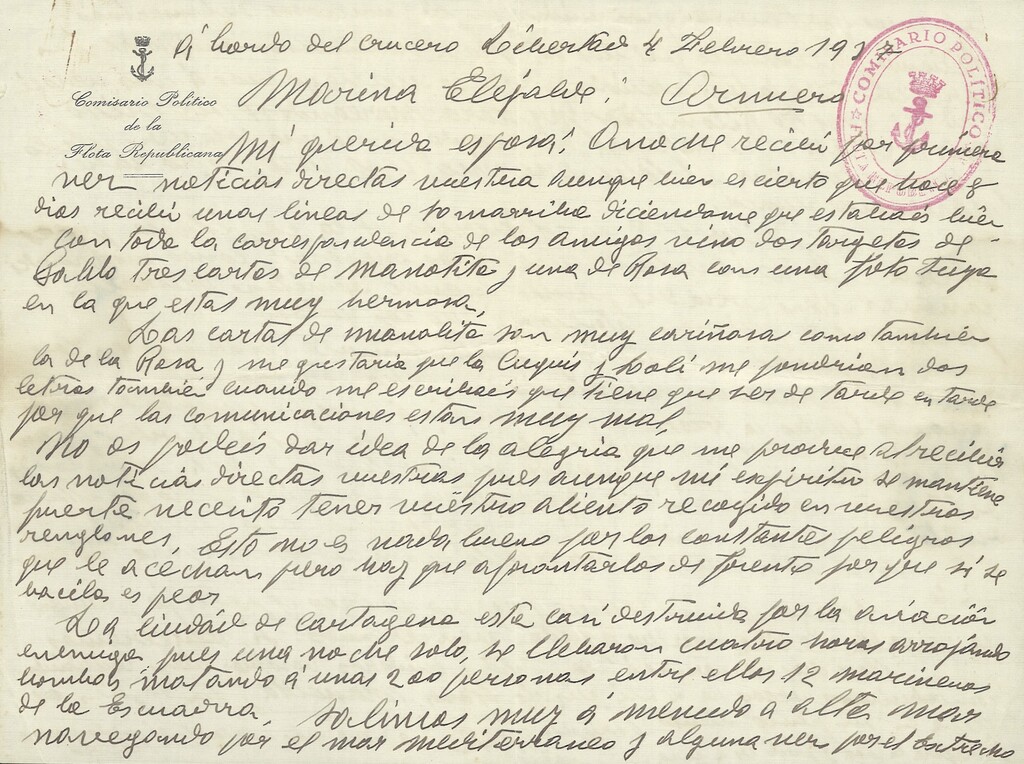 Á bordo del crucero Libertad 4 Febrero 193
Comisario Político
de la
Flota Republicana
COMISARIO POLÍTICO
Marina Elejalde. Arnuero
Mi querida esposa: Anoche recibí por primera
vez noticias directas vuestra aunque bien es cierto que hace 8
dias recibí unas lineas de Somarriba diciendome que estabais bien
Con toda la correspondencia de los amigos vino dos targetas de
Pablo tres cartas de Manolita y una de Rosa con una foto tuya
en la que estas muy hermosa,
Las cartas de manolita son muy cariñosa como también
la de la Rosa y me gustaria que la Cuquis y Loli me pondrian dos
letras también cuando me escribais que tiene que ser de tarde en tarde
por que las comunicaciones estan muy mal,
No os podeis dar idea de la alegria que me produce al recibir
las noticias directas vuestras pues aunque mi espiritu se mantiene
fuerte necesito tener vuestro aliento recogido en vuestros
renglones, Esto no es nada bueno por los constante peligros
que le acechan pero hay que afrontarlos de frente por que si se
bacila es peor
La Ciudad de Cartagena esta casi destruida por la aviación
enemiga pues una noche solo, se llebaron cuatro horas arrojando
bombas matando á unas 200 personas entre ellos 12 marineros
de la Escuadra, Salimos muy á menudo á alta mar
navegando por el mar mediterraneo y alguna vez por el Estrecho